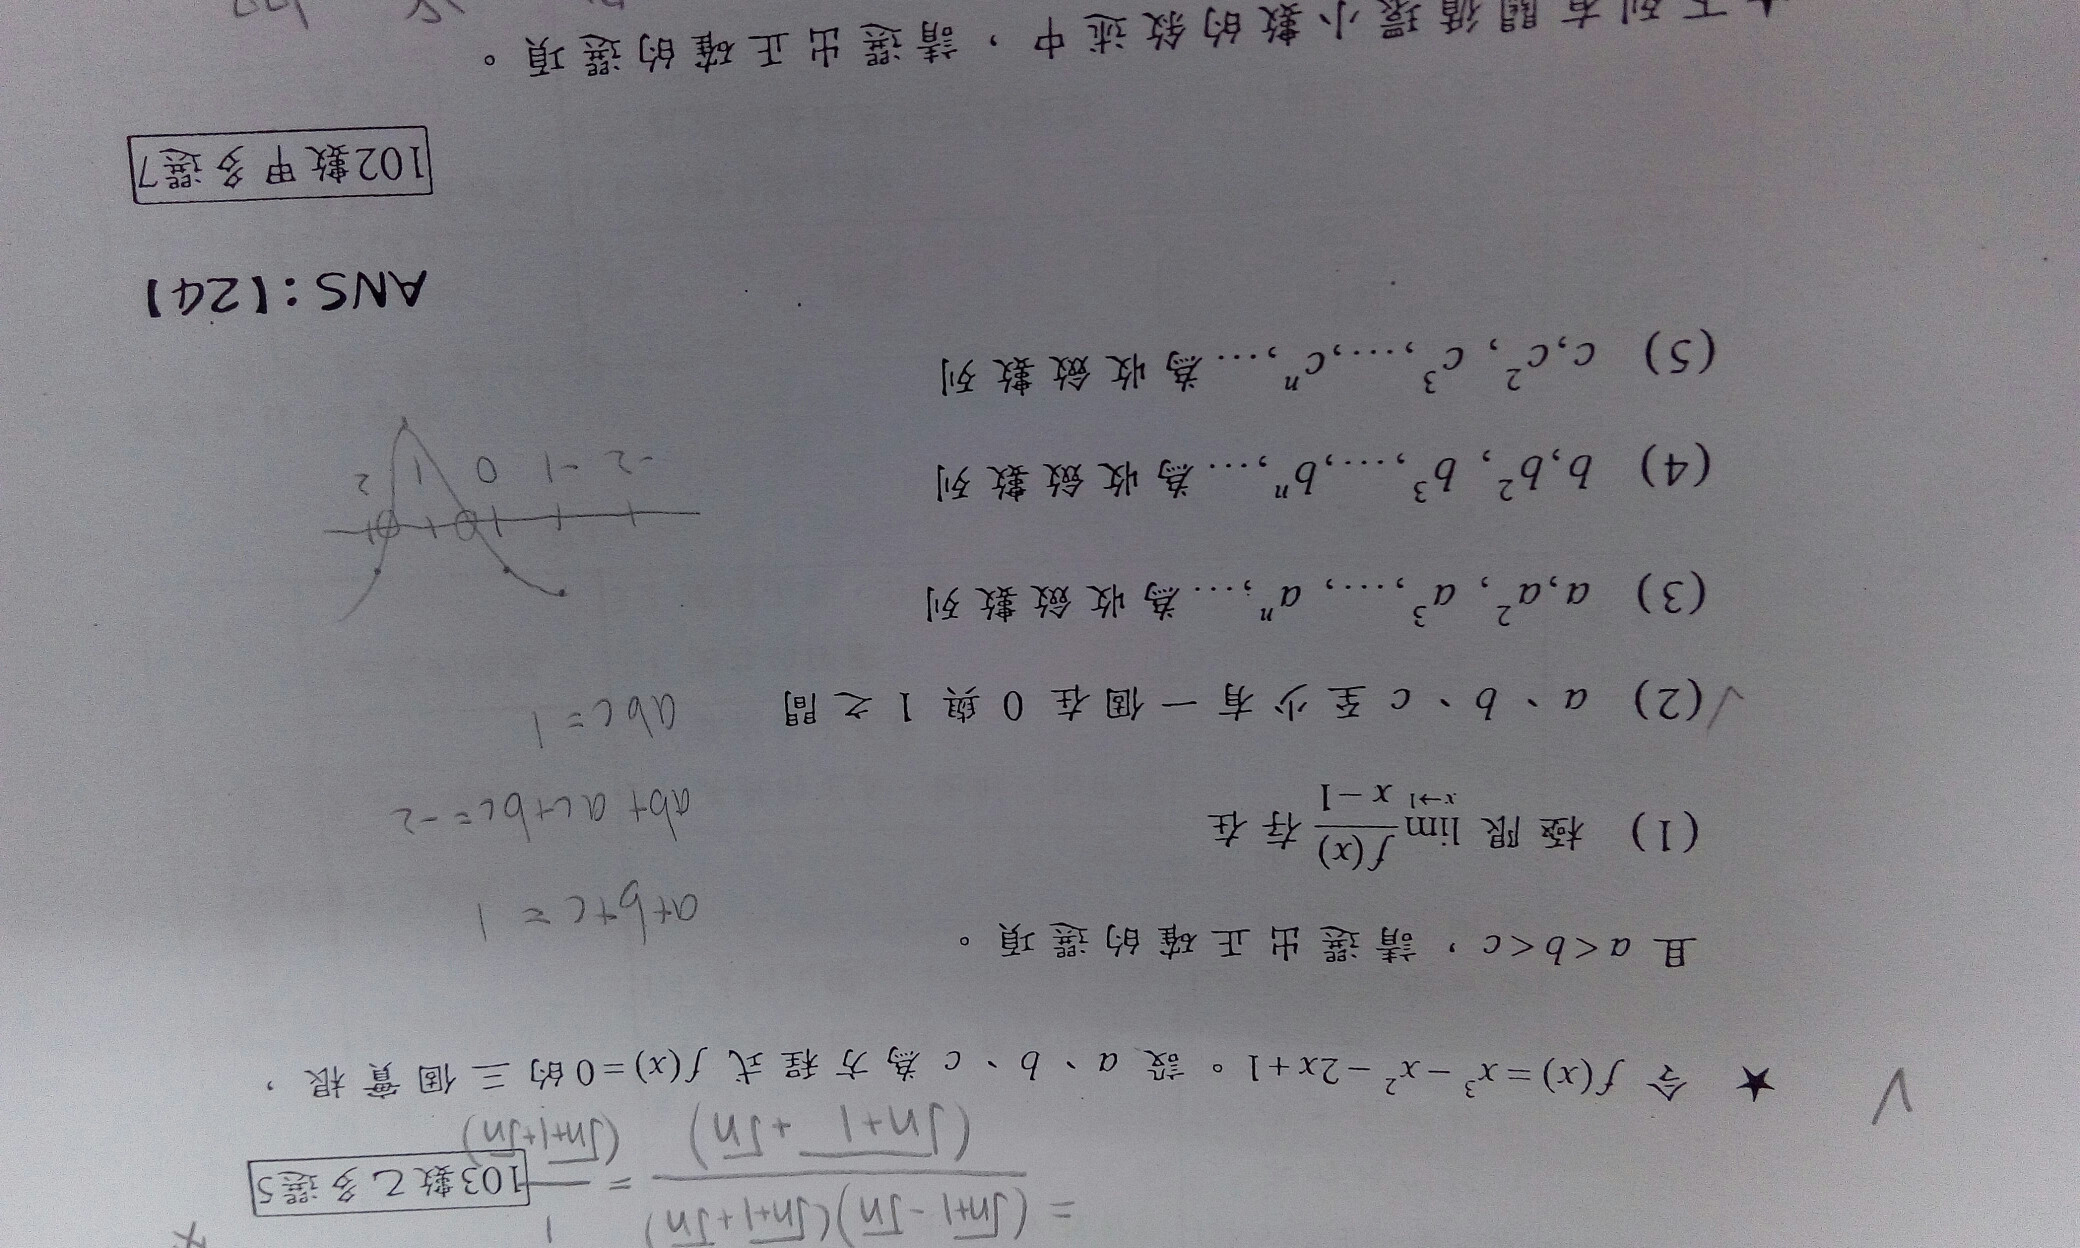 = (√n+1 - √n)(√n+1 + √n) / (√n+1 + √n) = 1 / (√n+1 + √n)
103數乙多選5
★ 令 f(x)=x³-x²-2x+1。設 a、b、c 為方程式 f(x)=0的三個實根，
且 a<b<c，請選出正確的選項。
a+b+c = 1
(1) 極限 lim x→1 f(x)/x-1 存在
ab+ac+bc=-2
(2) a、b、c 至少有一個在 0 與 1 之間
abc=1
(3) a,a²,a³,...,aⁿ,...為收斂數列
(4) b,b²,b³,...,bⁿ,...為收斂數列
-2 -1 0 1 2
(5) c,c²,c³,...,cⁿ,...為收斂數列
ANS:(24)
102數甲多選7
下列有關循環小數的敘述中，請選出正確的選項。